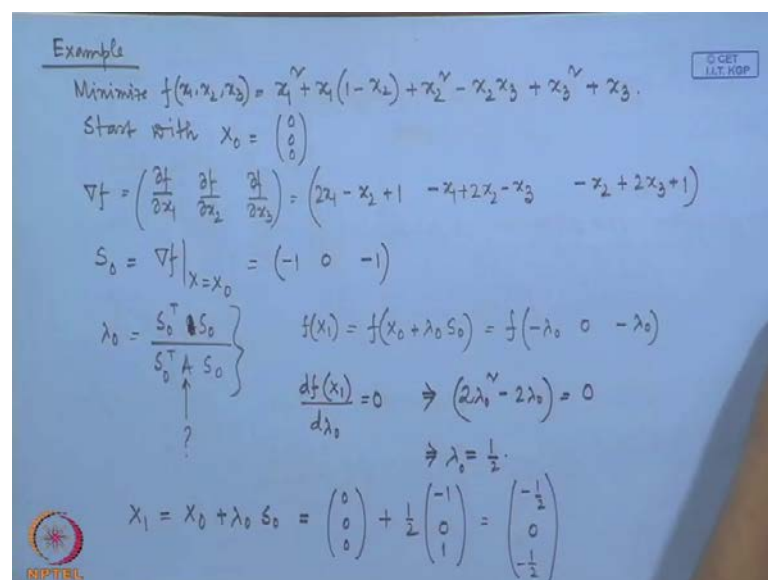 Example
© CET
I.I.T. KGP
Minimize f(x₁, x₂, x₃) = x₁² + x₁(1 - x₂) + x₂² - x₂x₃ + x₃² + x₃.
Start with X₀ = (0 0 0)
∇f = (∂f/∂x₁ ∂f/∂x₂ ∂f/∂x₃) = (2x₁ - x₂ + 1 -x₁ + 2x₂ - x₃ -x₂ + 2x₃ + 1)
S₀ = ∇f|X=X₀ = (-1 0 -1)
λ₀ = S₀ᵀ S₀ / S₀ᵀ A S₀ } f(X₁) = f(X₀ + λ₀ S₀) = f(-λ₀ 0 -λ₀)
df(X₁)/dλ₀ = 0 ⇒ (2λ₀² - 2λ₀) = 0
?
⇒ λ₀ = 1/2.
X₁ = X₀ + λ₀ S₀ = (0 0 0) + 1/2 (-1 0 1) = (-1/2 0 -1/2)
NPTEL